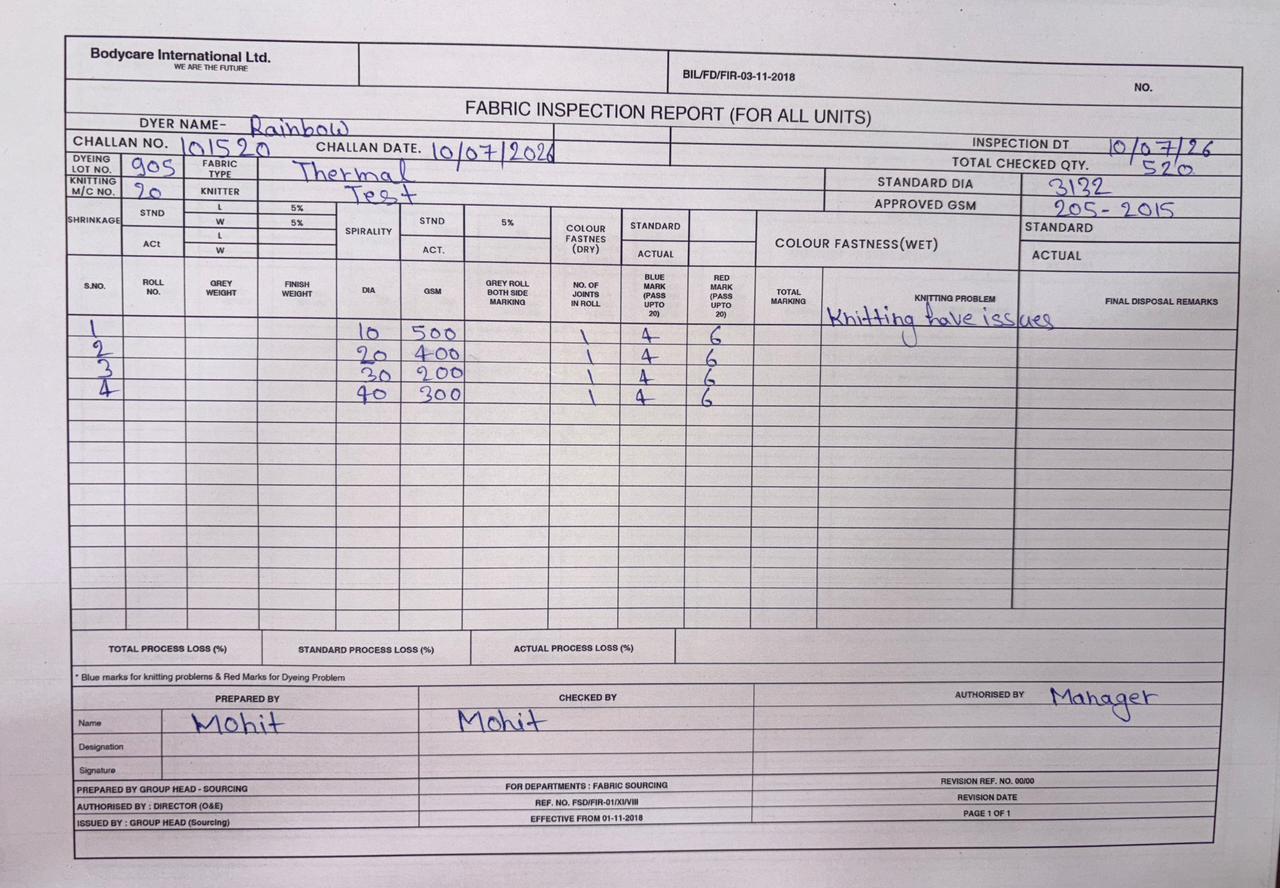 Bodycare International Ltd.
WE ARE THE FUTURE
BIL/FD/FIR-03-11-2018 NO.
FABRIC INSPECTION REPORT (FOR ALL UNITS)
DYER NAME- Rainbow
CHALLAN NO. 101520 CHALLAN DATE. 10/07/2026 INSPECTION DT 10/07/26
DYEING LOT NO. 905 FABRIC TYPE Thermal TOTAL CHECKED QTY. 520
KNITTING M/C NO. 20 KNITTER Test STANDARD DIA 3132
APPROVED GSM 205-2015
SHRINKAGE STND L 5% SPIRALITY STND 5% COLOUR FASTNES (DRY) STANDARD COLOUR FASTNESS(WET) STANDARD
W 5%
ACt L ACT. ACTUAL ACTUAL
W
S.NO. ROLL NO. GREY WEIGHT FINISH WEIGHT DIA GSM GREY ROLL BOTH SIDE MARKING NO. OF JOINTS IN ROLL BLUE MARK (PASS UPTO 20) RED MARK (PASS UPTO 20) TOTAL MARKING KNITTING PROBLEM FINAL DISPOSAL REMARKS
Knitting have issues
1 10 500 1 4 6
2 20 400 1 4 6
3 30 200 1 4 6
4 40 300 1 4 6
TOTAL PROCESS LOSS (%) STANDARD PROCESS LOSS (%) ACTUAL PROCESS LOSS (%)
* Blue marks for knitting problems & Red Marks for Dyeing Problem
PREPARED BY CHECKED BY AUTHORISED BY Manager
Name Mohit Mohit
Designation
Signature
PREPARED BY GROUP HEAD - SOURCING FOR DEPARTMENTS : FABRIC SOURCING REVISION REF. NO. 00/00
AUTHORISED BY : DIRECTOR (O&E) REF. NO. FSD/FIR-01/XI/VIII REVISION DATE
ISSUED BY : GROUP HEAD (Sourcing) EFFECTIVE FROM 01-11-2018 PAGE 1 OF 1